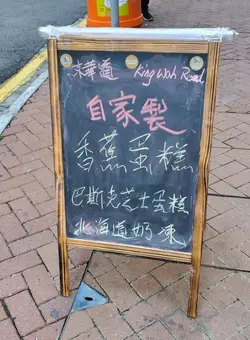 京華道 King Wah Road
自家製
香蕉蛋糕
巴斯克芝士蛋糕
北海道奶凍